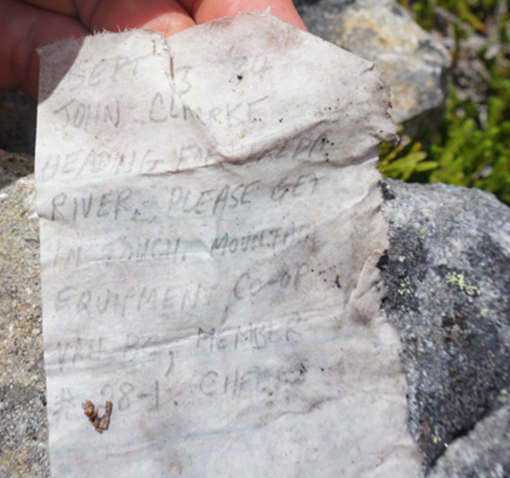 SEPT 3
JOHN CLARKE
HEADING FOR
RIVER. PLEASE GET
IN TOUCH. MOUNTAIN
EQUIPMENT CO-OP,
VAN BC, MEMBER